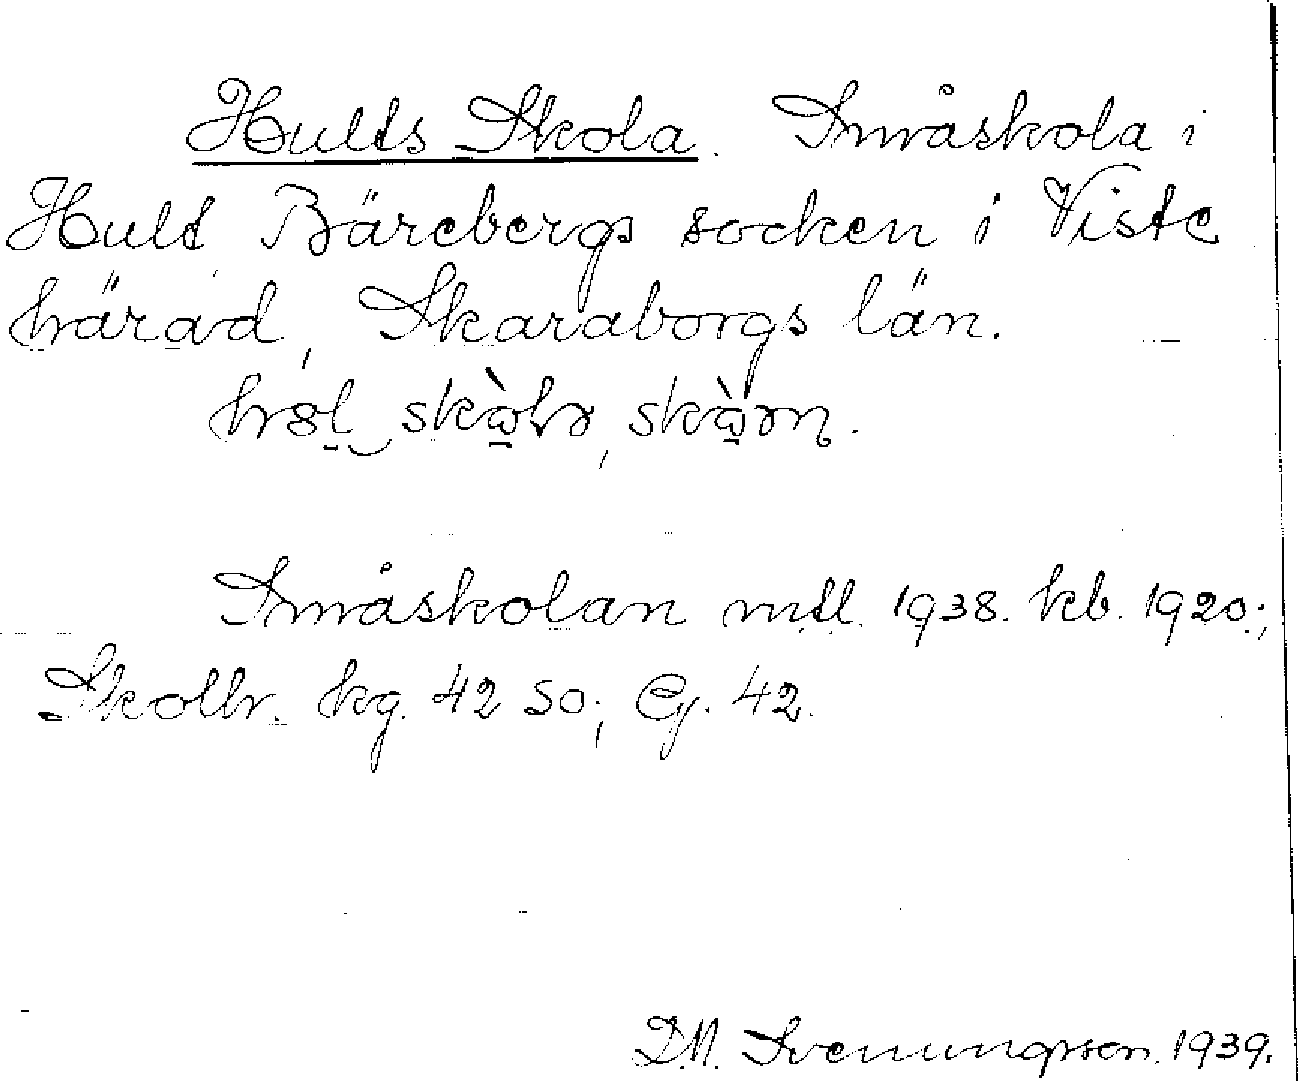 Hults Skola. Småskola i
Hult Bärebergs socken i Viste
härad, Skaraborgs län.
Småskolan mtl. 1938. kb. 1920.;
Skolbr. kg. 42 SO; Gj. 42.
D.N. Svenungsson. 1939.